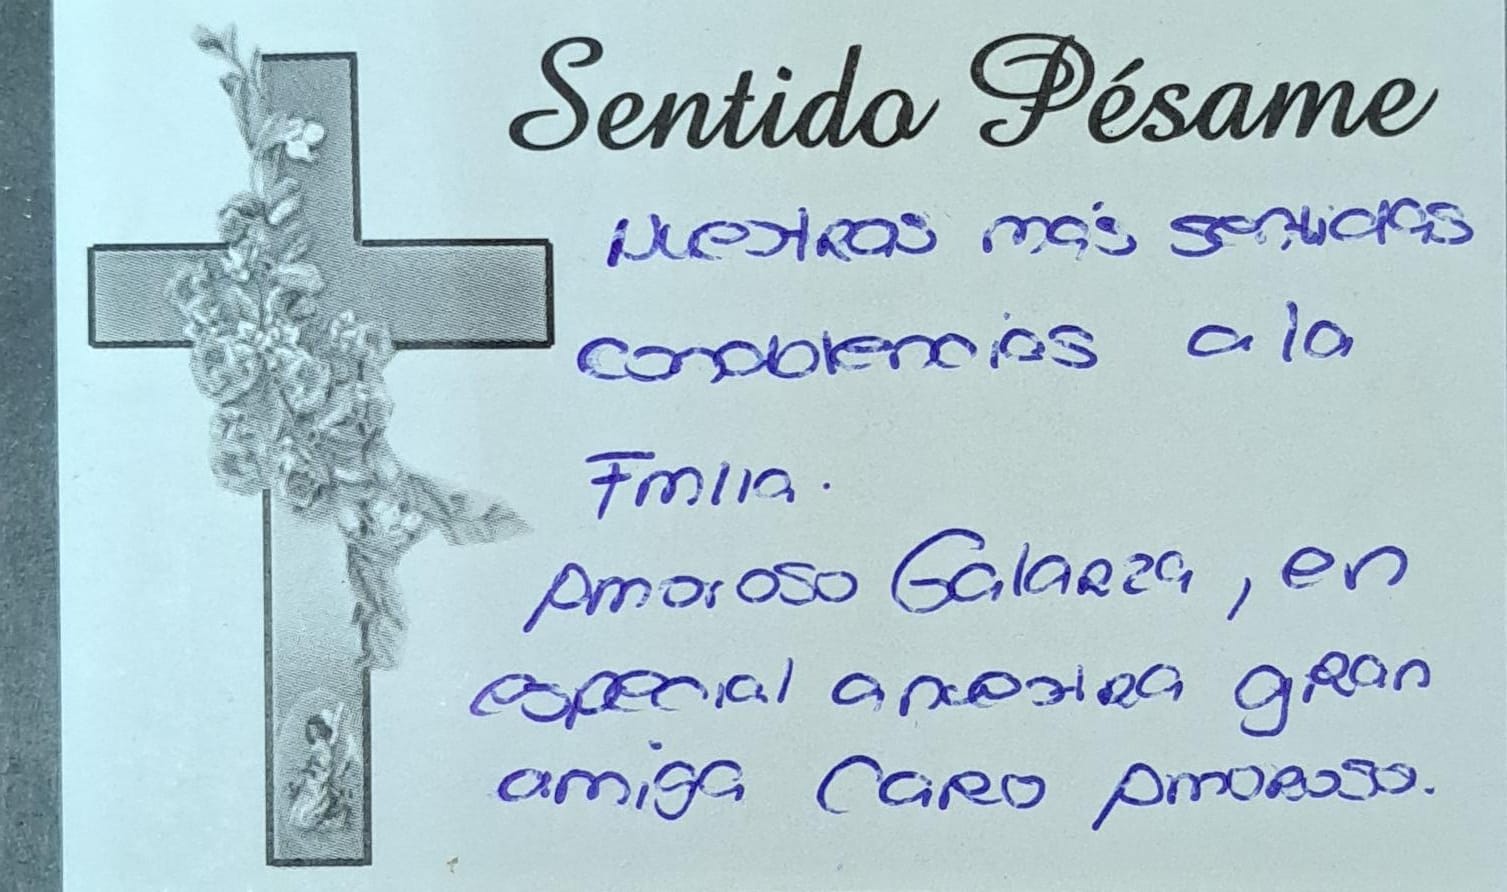 Sentido Pésame
Nuestras más sentidas
condolencias a la
Fmlia.
Amoroso Galarza, en
especial a nuestra gran
amiga Caro Amoroso.